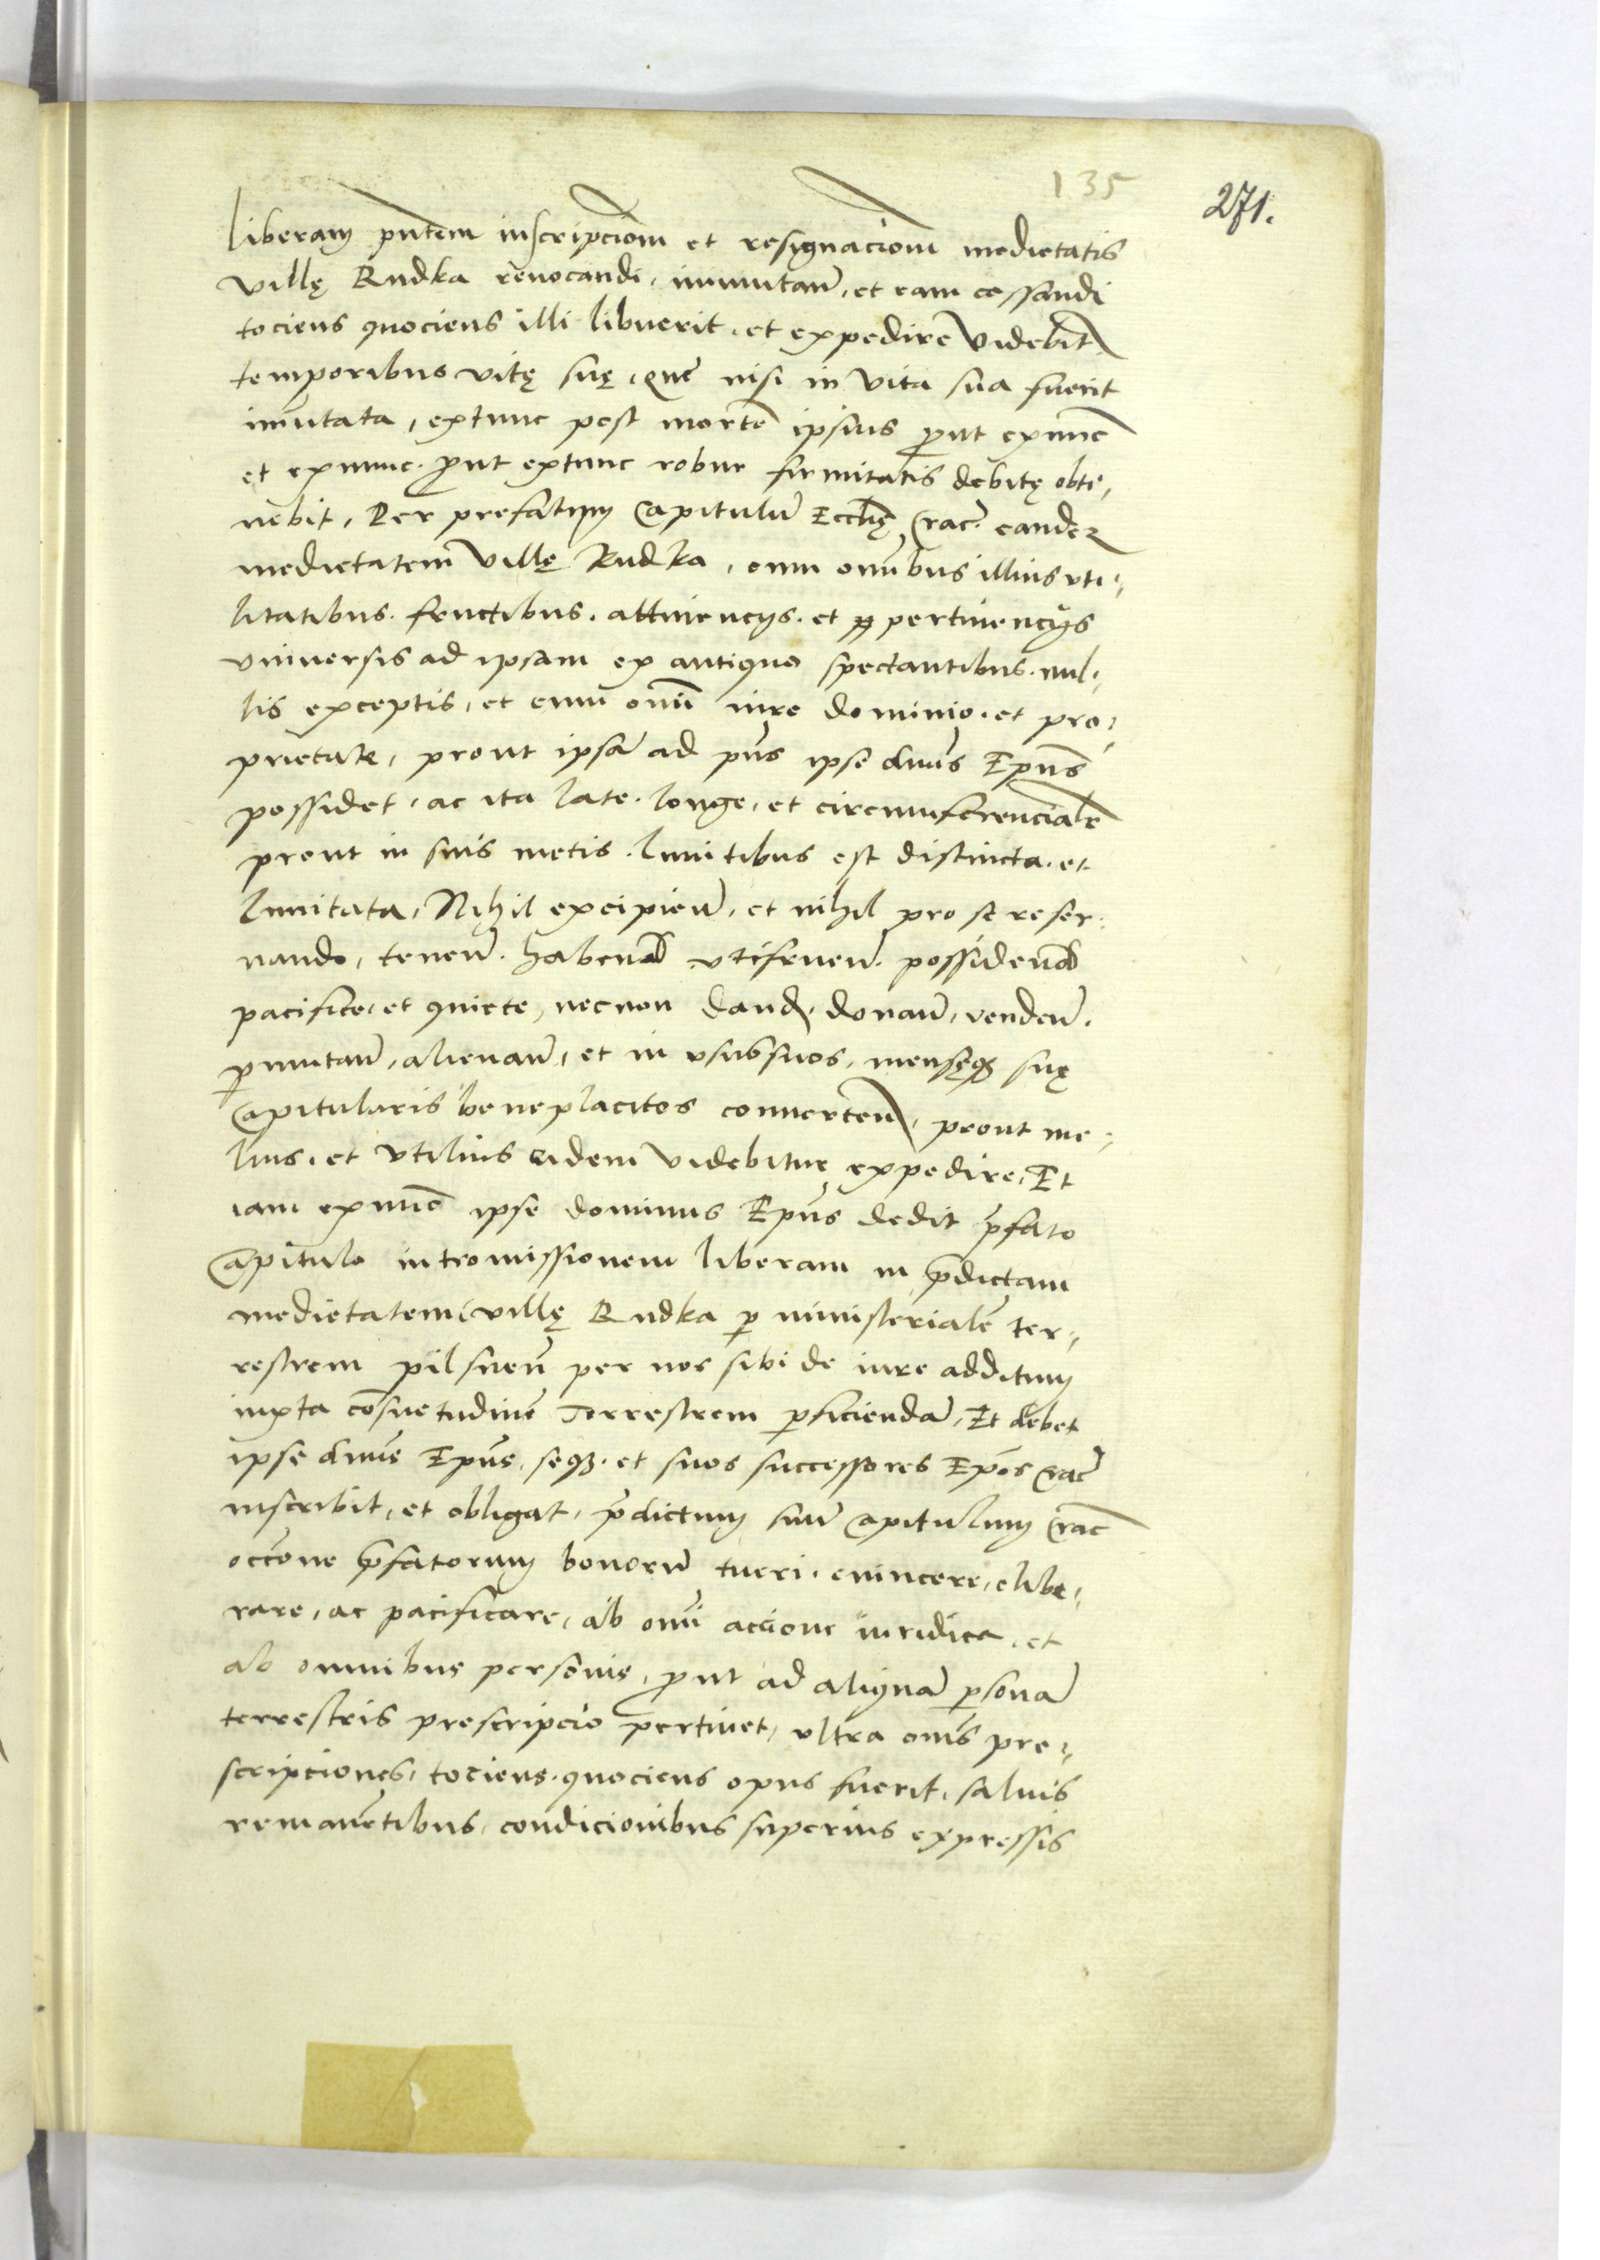 135
271.
liberam pntem inscripciom et resignaciom medietatis
villę Rudka revocandi, immutan̄, et eam cessandi
tociens quociens illi libuerit, et expedire videbit̄
temporibus vitę suę, que nisi in vita sua fuerit
im̄utata, extunc post mortē ipsius p̄ut exnunc
et exnunc p̄ut extunc robur firmitatis debitę obti,,
nebit, Per prefatum Capitulū Eccl̄ię Crac̄. eandem
medietatem villę Rudka, cum om̄bus illius uti,,
litatibus. fructibus. attinencijs. et pertinencijs
universis ad ipsam ex antiquo spectantibus. nul,,
lis exceptis, et cum om̄i iure dominio. et pro,,
prietate, prout ipsā ad pn̄s ipse dn̄us Ep̄us
possidet, ac ita late. longe, et circumferencialr̄
prout in suis metis. limitibus est distincta. et
limitata, Nihil excipien̄, et nihil pro se reser,,
vando, tenen̄. habend̄ utifruen̄. possidend̄
pacifice, et quiete, necnon dand̄. donan̄, venden̄.
p̄mutan̄, alienan̄, et in usus suos, mensęq₃ suę
Capitularis beneplacitos converten̄, prout me,,
lius, et utilius eidem videbitur expedire, Et
iam exnunc ipse dominus Ep̄us dedit p̄fato
Capitulo intromissionem liberam in p̄dictam
medietatem villę Rudka p̄ ministerialē ter,,
restrem pilsnen̄ per nos sibi de iure additum
iuxta cōsuetudinē Terrestrem p̄ficiendā, Et debet
ipse dn̄us Ep̄us, seq₃. et suos successores Ep̄os Crac̄
inscribit, et obligat, p̄dictum suū Capitulum Crac̄
occ̄one p̄fatorum bonorū tueri. evincere, elibe,,
rare, ac pacificare, ab om̄i accione iuridica, et
ab omnibus personis, p̄ut ad aliquā p̄sonā
terrestris prescripcio pertinet, ultra om̄s pre,,
scripciones, tociens. quociens opus fuerit, salvis
remanētibus, condicionibus superius expressis